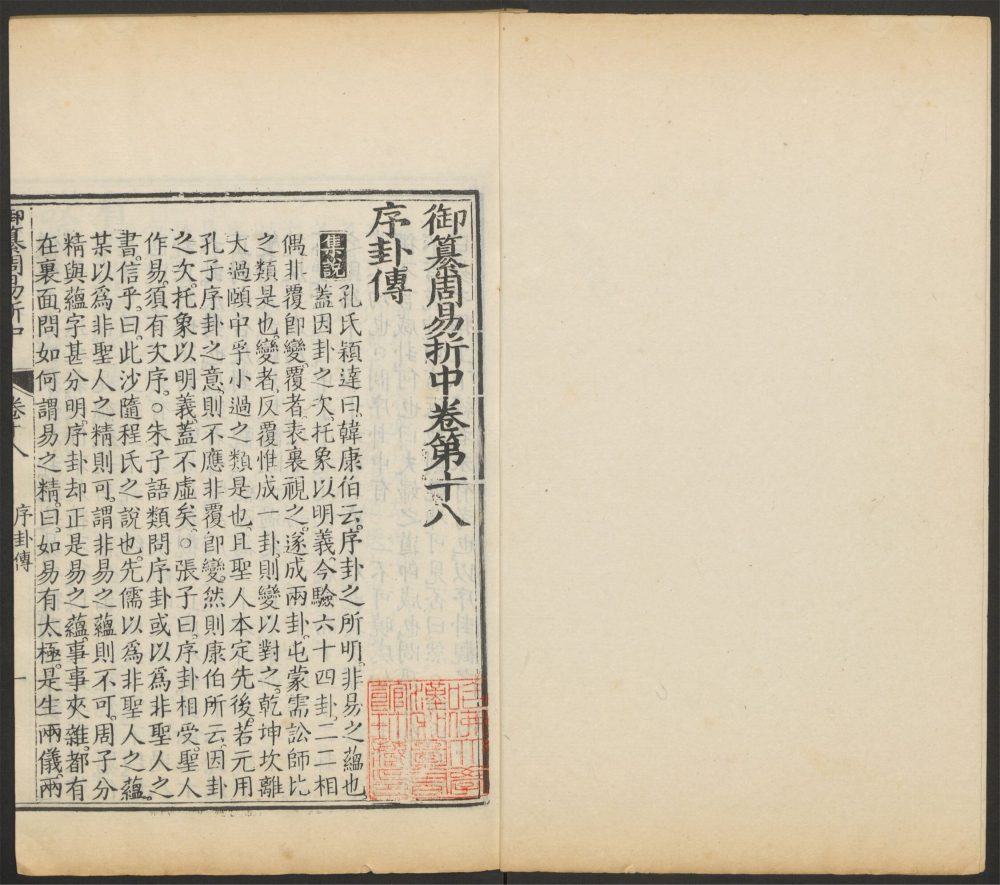 御纂周易折中卷第十八
序卦傳
集說 孔氏穎達曰韓康伯云序卦之所明非易之蘊也
蓋因卦之次托象以明義今驗六十四卦二二相
偶非覆即變覆者表裏視之遂成兩卦屯蒙需訟師比
之類是也變者反覆惟成一卦則變以對之乾坤坎離
大過頤中孚小過之類是也且聖人本定先後若元用
孔子序卦之意則不應非覆即變然則康伯所云因卦
之次托象以明義蓋不虛矣○張子曰序卦相受聖人
作易須有次序○朱子語類問序卦或以爲非聖人之
書信乎曰此沙隨程氏之說也先儒以爲非聖人之蘊
某以爲非聖人之精則可謂非易之蘊則不可周子分
精與蘊字甚分明序卦却正是易之蘊事事夾雜都有
在裏面問如何謂易之精曰如易有太極是生兩儀兩
御纂周易折中 卷十八 序卦傳 一